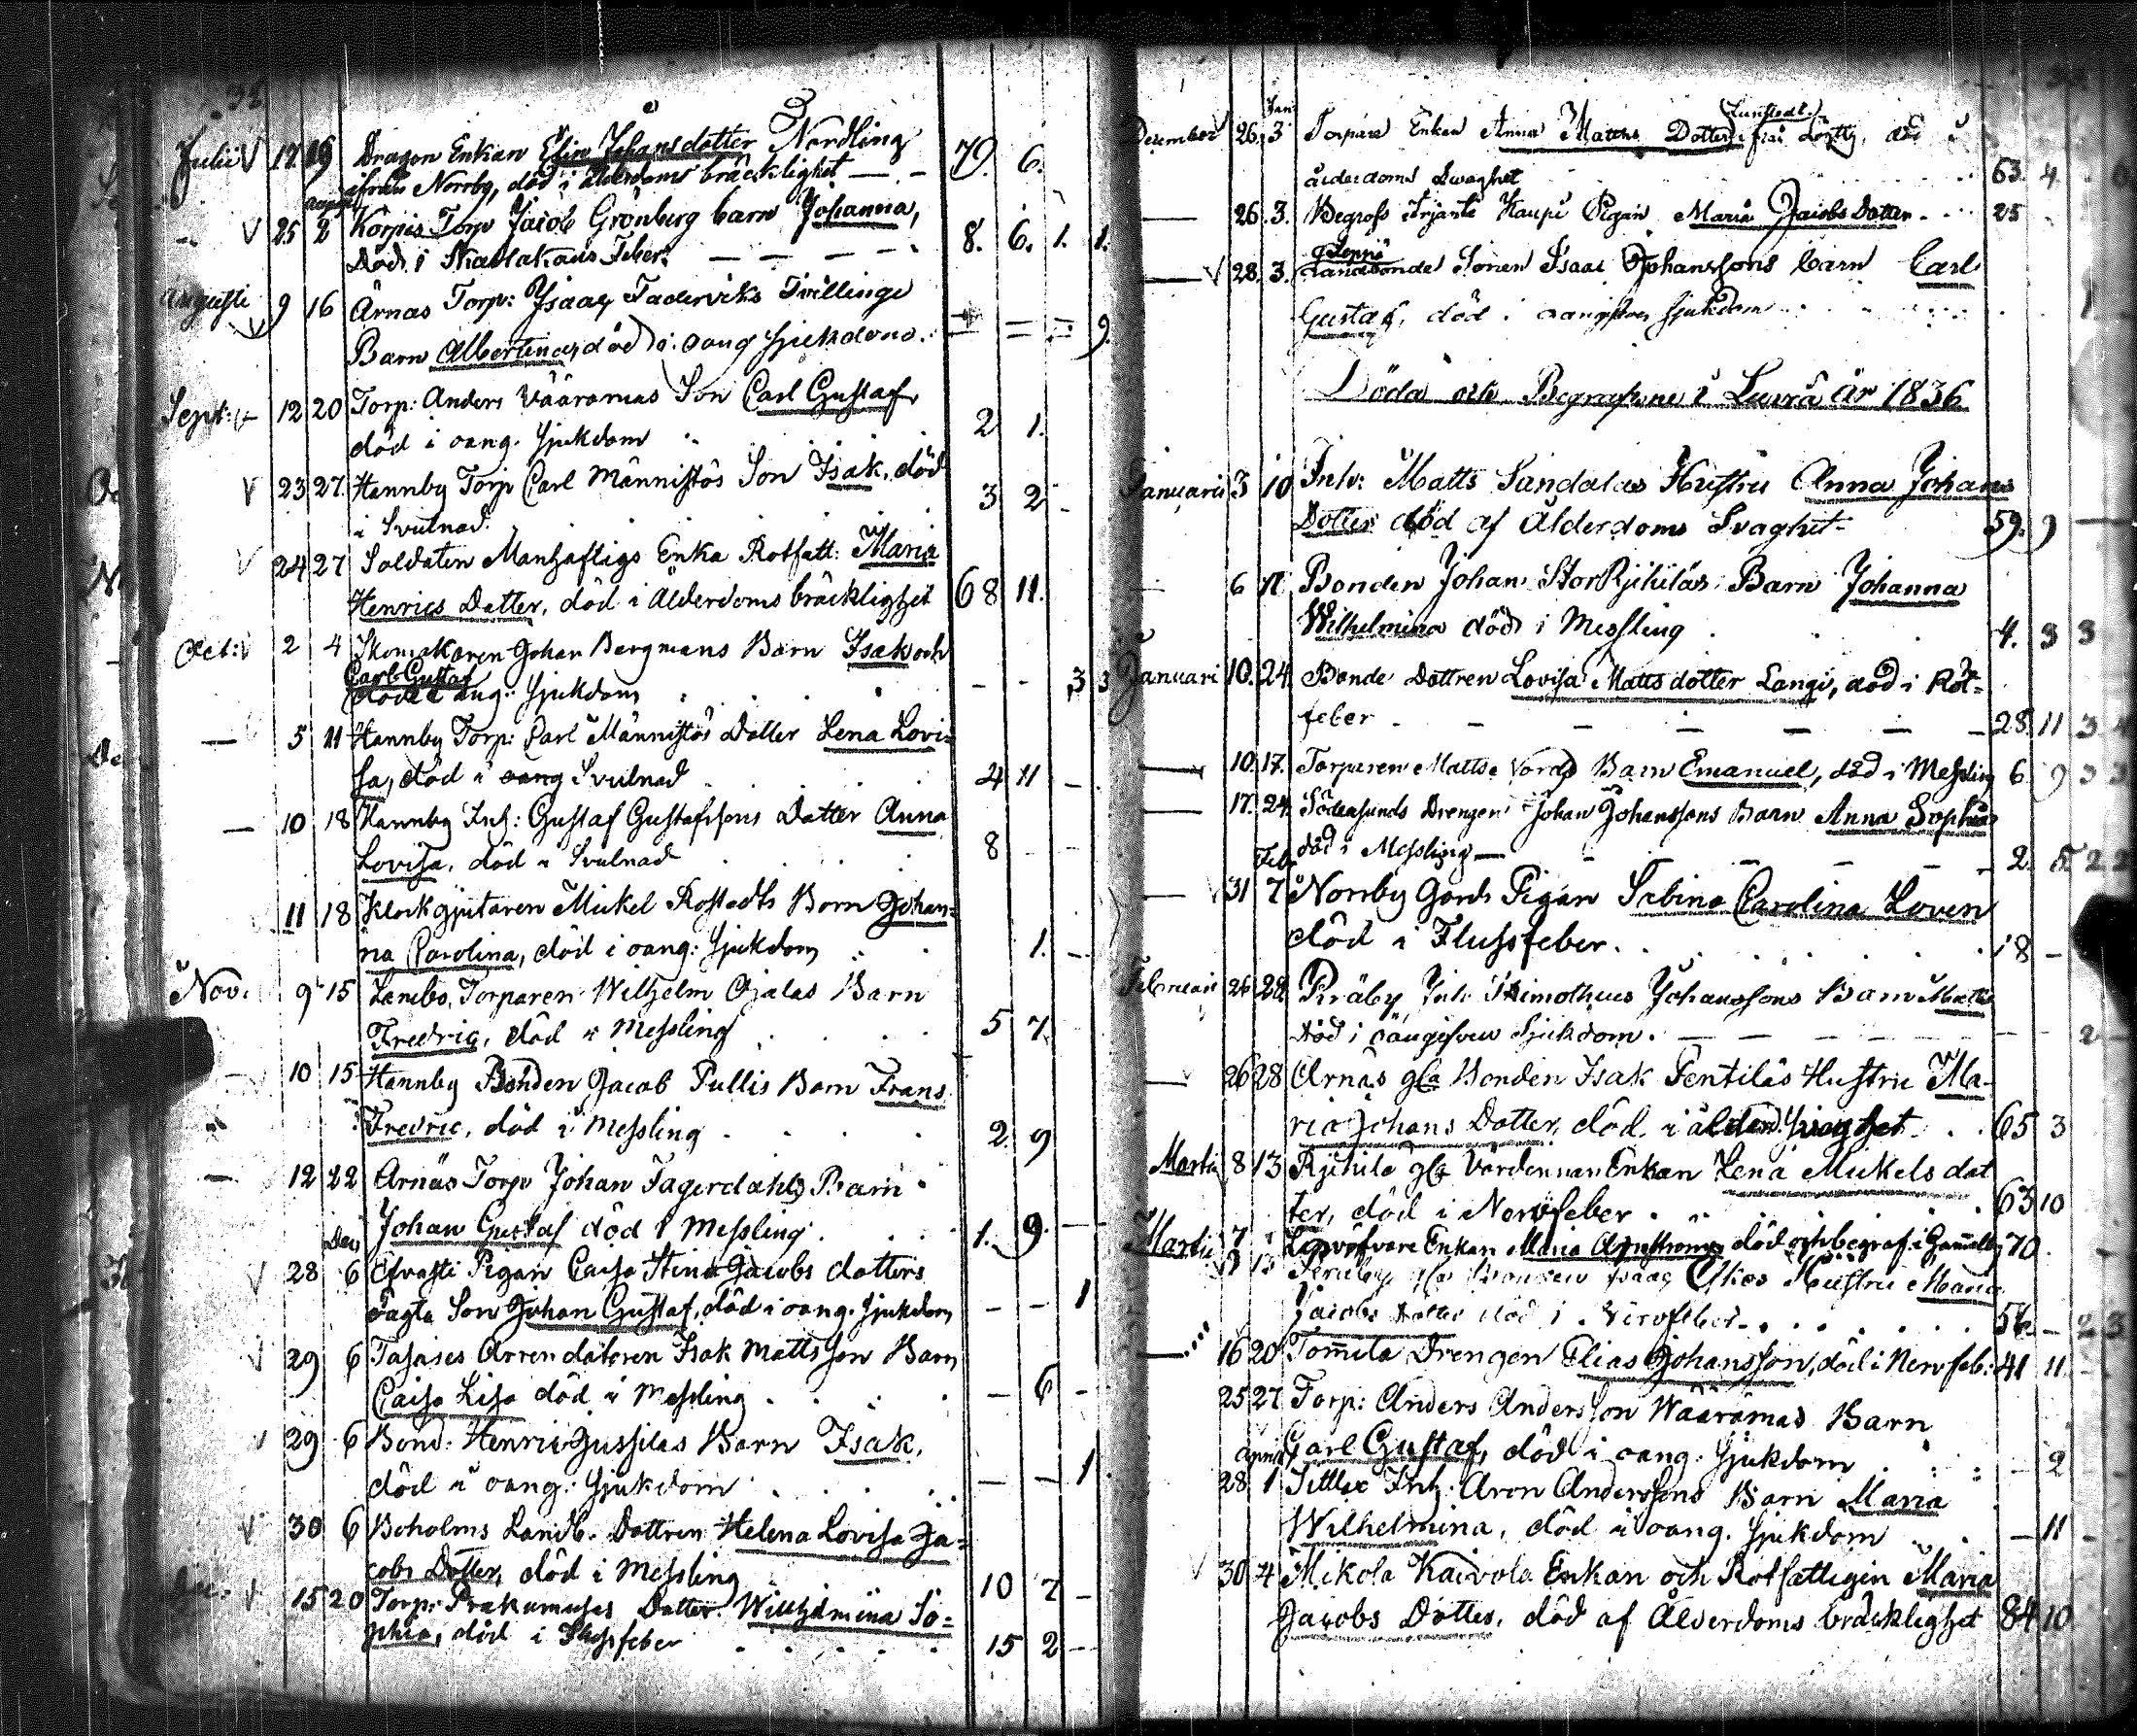 32
Julii 17 19 Dragon Enkan Elin Johansdotter Nordling
ifrån Norrby, död i ålderdoms bräcklighet — - 79. 6.
August
25 2 Korpis Torp Jacob Grönberg barn Johanna,
Död i Skarlakans Feber. — — — — 8. 6. 1. 1.
Augusti 9 16 Ärnas Torp: Isaac Tadervik's Tvillinge
Barn Albertina, död i oang sjukdom. 9.
Sept: 12 20 Torp: Anders Vääramas Son Carl Gustaf,
död i oang. sjukdom 2 1.
23 27 Hannby Torp Carl Männistös Son Isak, död
i Svulnad. 3 2 -
24 27 Soldaten Manhaftigs Enka Rotfatt: Maria
Henrics Dotter, död i Ålderdoms bräcklighet 68 11.
Oct: 2 4 Skomakaren Johan Bergmans Barn Isak och
Carl Gustaf
döde i ang: sjukdom - - 3 3
— 5 11 Hannby Torp: Carl Männistös Dotter Lena Lovi=
sa, död i oang Svulnad 4 11 -
— 10 18 Hannby Inh: Gustaf Gustafssons Dotter Anna
Lovisa, död i Svulnad 8 - -
11 18 Klockgjutaren Mickel Rostedts Barn Johan=
na Carolina, död i oang: sjukdom 1. -
Nov. 9 15 Lambo, Torparen Wilhelm Ojalas Barn
Fredric, död i Messling 5 7.
— 10 15 Hannby Bonden Jacob Pullis Barn Frans
Fredric, död i Messling 2 9
— 12 22 Arnäs Torp Johan Fagerdahls Barn
Johan Gustaf död i Messling. 1. 9. —
Dec
28 6 Pigan Caisa Stina Jacobs dotters
oägta Son Johan Gustaf, död i oang. sjukdom - - 1
29 6 Arrendatoren Isak Mattsson Barn
Caisa Lisa död i Messling — 6 -
29 6 Bond: Henric Jussilas Barn Isak,
död i oang: sjukdom — — 1.
30 6 Boholms Landb. Dottren Helena Lovisa Ja=
cobs Dotter, död i Messling 10 7 -
Dec: 15 20 Torp: Dotter Willhelmina So=
phia, död i Flussfeber 15 2 -
Jan
December 26. 3 Torpare Enkan Anna Matths Dotter Lunstedt från död i
ålderdoms Swaghet 63. 4.
— 26. 3. Kaupi Pigan Maria Jacobs Dotter 25
— 28. 3. Leppis Landbonde Sonen Isaac Johanssons barn Carl
Gustaf, död i oangifven sjukdom 1
Döda och Begrafne i Lurå år 1836
Januarii 3 10 Inh: Matts Sandalas Hustru Anna Johans
Dotter död af Ålderdoms Svaghet 59. 9 —
— 6 11 Bonden Johan StorRjihiläs Barn Johanna
Wilhelmina död i Messling 4. 3 3
Januari 10. 24 Bonde Dottren Lovisa Mattsdotter Langi, död i Röt=
feber — — — — — 28 11 3 4
— 10. 17. Torparen Matts Barn Emanuel, död i Messling 6 9 3 3
— 17. 24 Södersunds Drengen Johan Johanssons Barn Anna Sophia
död i Messling — 2. 5 2 2
Feb
— 31 7 Norrby Gårds Pigan Sabina Carolina Loven
död i Flussfeber. 18 -
Februari 26 28 Piräby Inh: Thimotheus Johanssons Barn Matts
död i oangifven Sjukdom. — — 2
— 26 28 Arnäs gla Bonden Isak Pentiläs Hustru Ma-
ria Johans Dotter, död i ålderd svaghet 65 3
Martii 8 13 Rjihila gla Värdennan Enkan Lena Mickels dot
ter, död i Nervfeber 63 10
Martii 7 Enkan Maria död och begraf i Gamelby 70.
9 13 Bonden Isaac Hustru Maria
Jacobs Dotter död i Nervfeber 56 - 2 3
— 16 20 Tomila Drengen Elias Johansson, död i Nervfeb: 41 11 -
25 27 Torp: Anders Andersson Wääramas Barn
Carl Gustaf, död i oang: sjukdom - 2
April
28 1 Inh: Aron Anderssons Barn Maria
Wilhelmina, död i oang. sjukdom — 11
30 4 Mikola Kaivola Enkan och Rotfattigin Maria
Jacobs Dotter, död af Ålderdoms bräcklighet 84 10